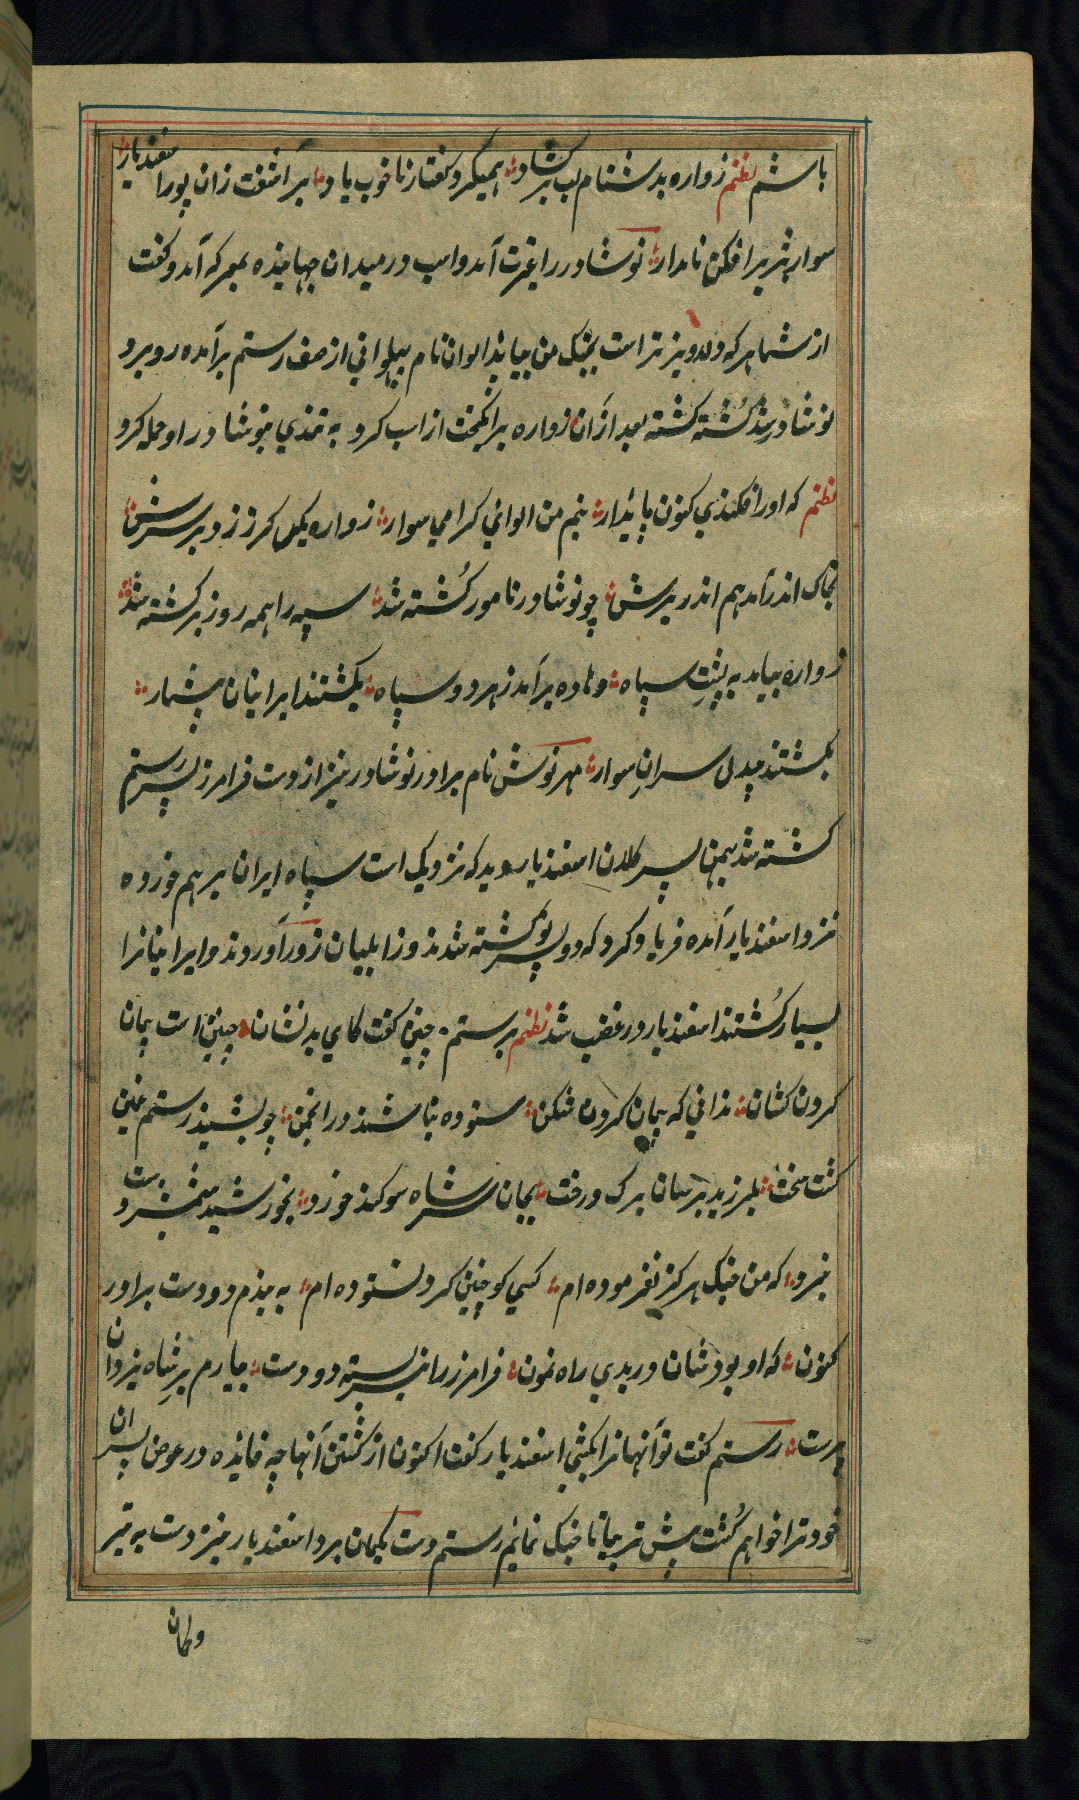 باشم نظم زواره بدشنام لب برکشاد همیکرد گفتار ناخوب یاد برآشفت زان پور اسفندیار
سوار هژبر افکن نامدار نوشاور را غیرت آمد و اسپ در میدان جهانیده بمعرکه آمد و گفت
از شما هر که دلاور تر است بجنگ من بیاید الوان نام پهلوانی از صف رستم برآمده روبرو
نوشاور شد کُشته گشته بعد ازآن زواره برانگیخت از اسپ گرد به تندی بنوشاور او حمله کرد
نظم که اورا فکندی کنون پایدار منم من الوانی گرامی سوار زواره یکی گرز زد بر سرش
بخاک اندر آمد هم اندر برش چو نوشاور نامور کُشته شد سپه را همه روز برگشته شد
زواره بیامد به پشتِ سپاه وماده برآمد زهر دو سپاه بکشتند ایرانیان بیشمار
بکشتند پیدل سرانِ سوار مهرنوش نام برادر نوشاور نیز از دست فرامرز پسر رستم
کشته شد بهمن پسر کلان اسفندیار دید که نزدیک است سپاه ایران برهم خورده
نزد اسفندیار آمده فریاد کرد که دو پسر تو کشته شدند و زابلیان زور آوردند و ایرانیانرا
بسیار کُشتند اسفندیار در غضب شد نظم برستم چنین گفت کای بدنشان چنین است پیمان
گردن کشان ندانی که پیمان کردن شکن ستوده نباشند در انجمن چو بشنید رستم غمین
گشت سخت بلرزید برسان برگ درخت بجان سر شاه سوگند خورد بخورشید و شمشیر و دست
نبرد که من جنگ هرگز نفرموده ام کسی کو چنین کرد نستوده ام به بندم دو دست برادر
کنون که او بودشان در بدی راه نمون فرامرز را نیز بسته دو دست بیارم برِ شاه یزدان
پرست رستم گفت تو آنهانرا بکشی اسفندیار گفت اکنون از کشتن آنها چه فایده در عوض پسران
خود ترا خواهم کُشت پیش تر بیا تا جنگ نمائیم رستم دست بکمان برد اسفندیار نیز دست به تیر
وکمان